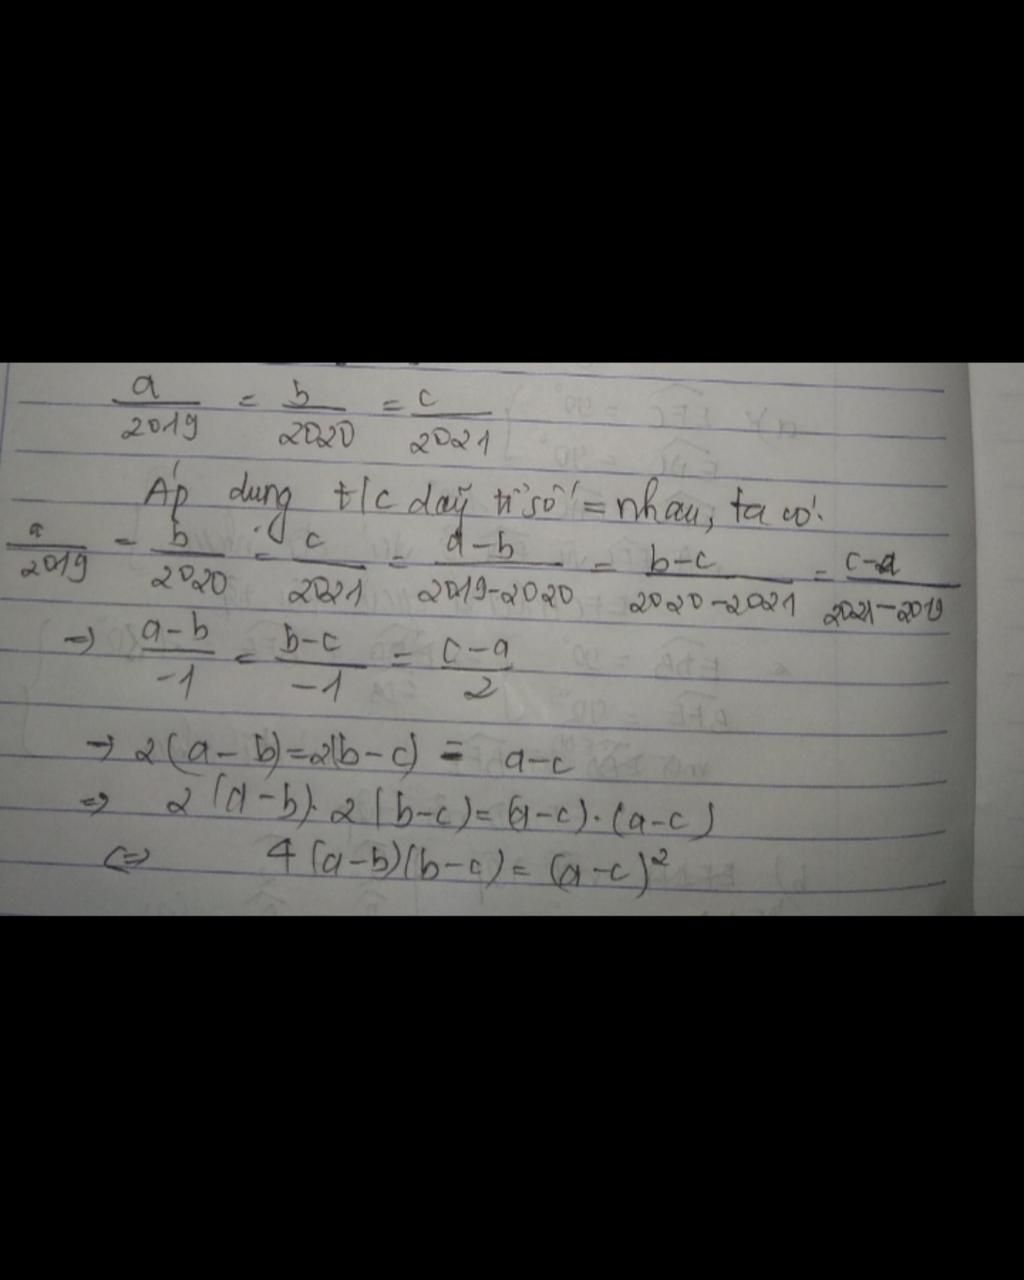 a/2019 = b/2020 = c/2021
Áp dụng t/c dãy tỉ số = nhau, ta có:
a/2019 = b/2020 = c/2021 = a-b/2019-2020 = b-c/2020-2021 = c-a/2021-2019
=> a-b/-1 = b-c/-1 = c-a/2
=> 2(a-b)=2(b-c) = a-c
=> 2(a-b).2(b-c)=(a-c).(a-c)
<=> 4(a-b)(b-c)=(a-c)²